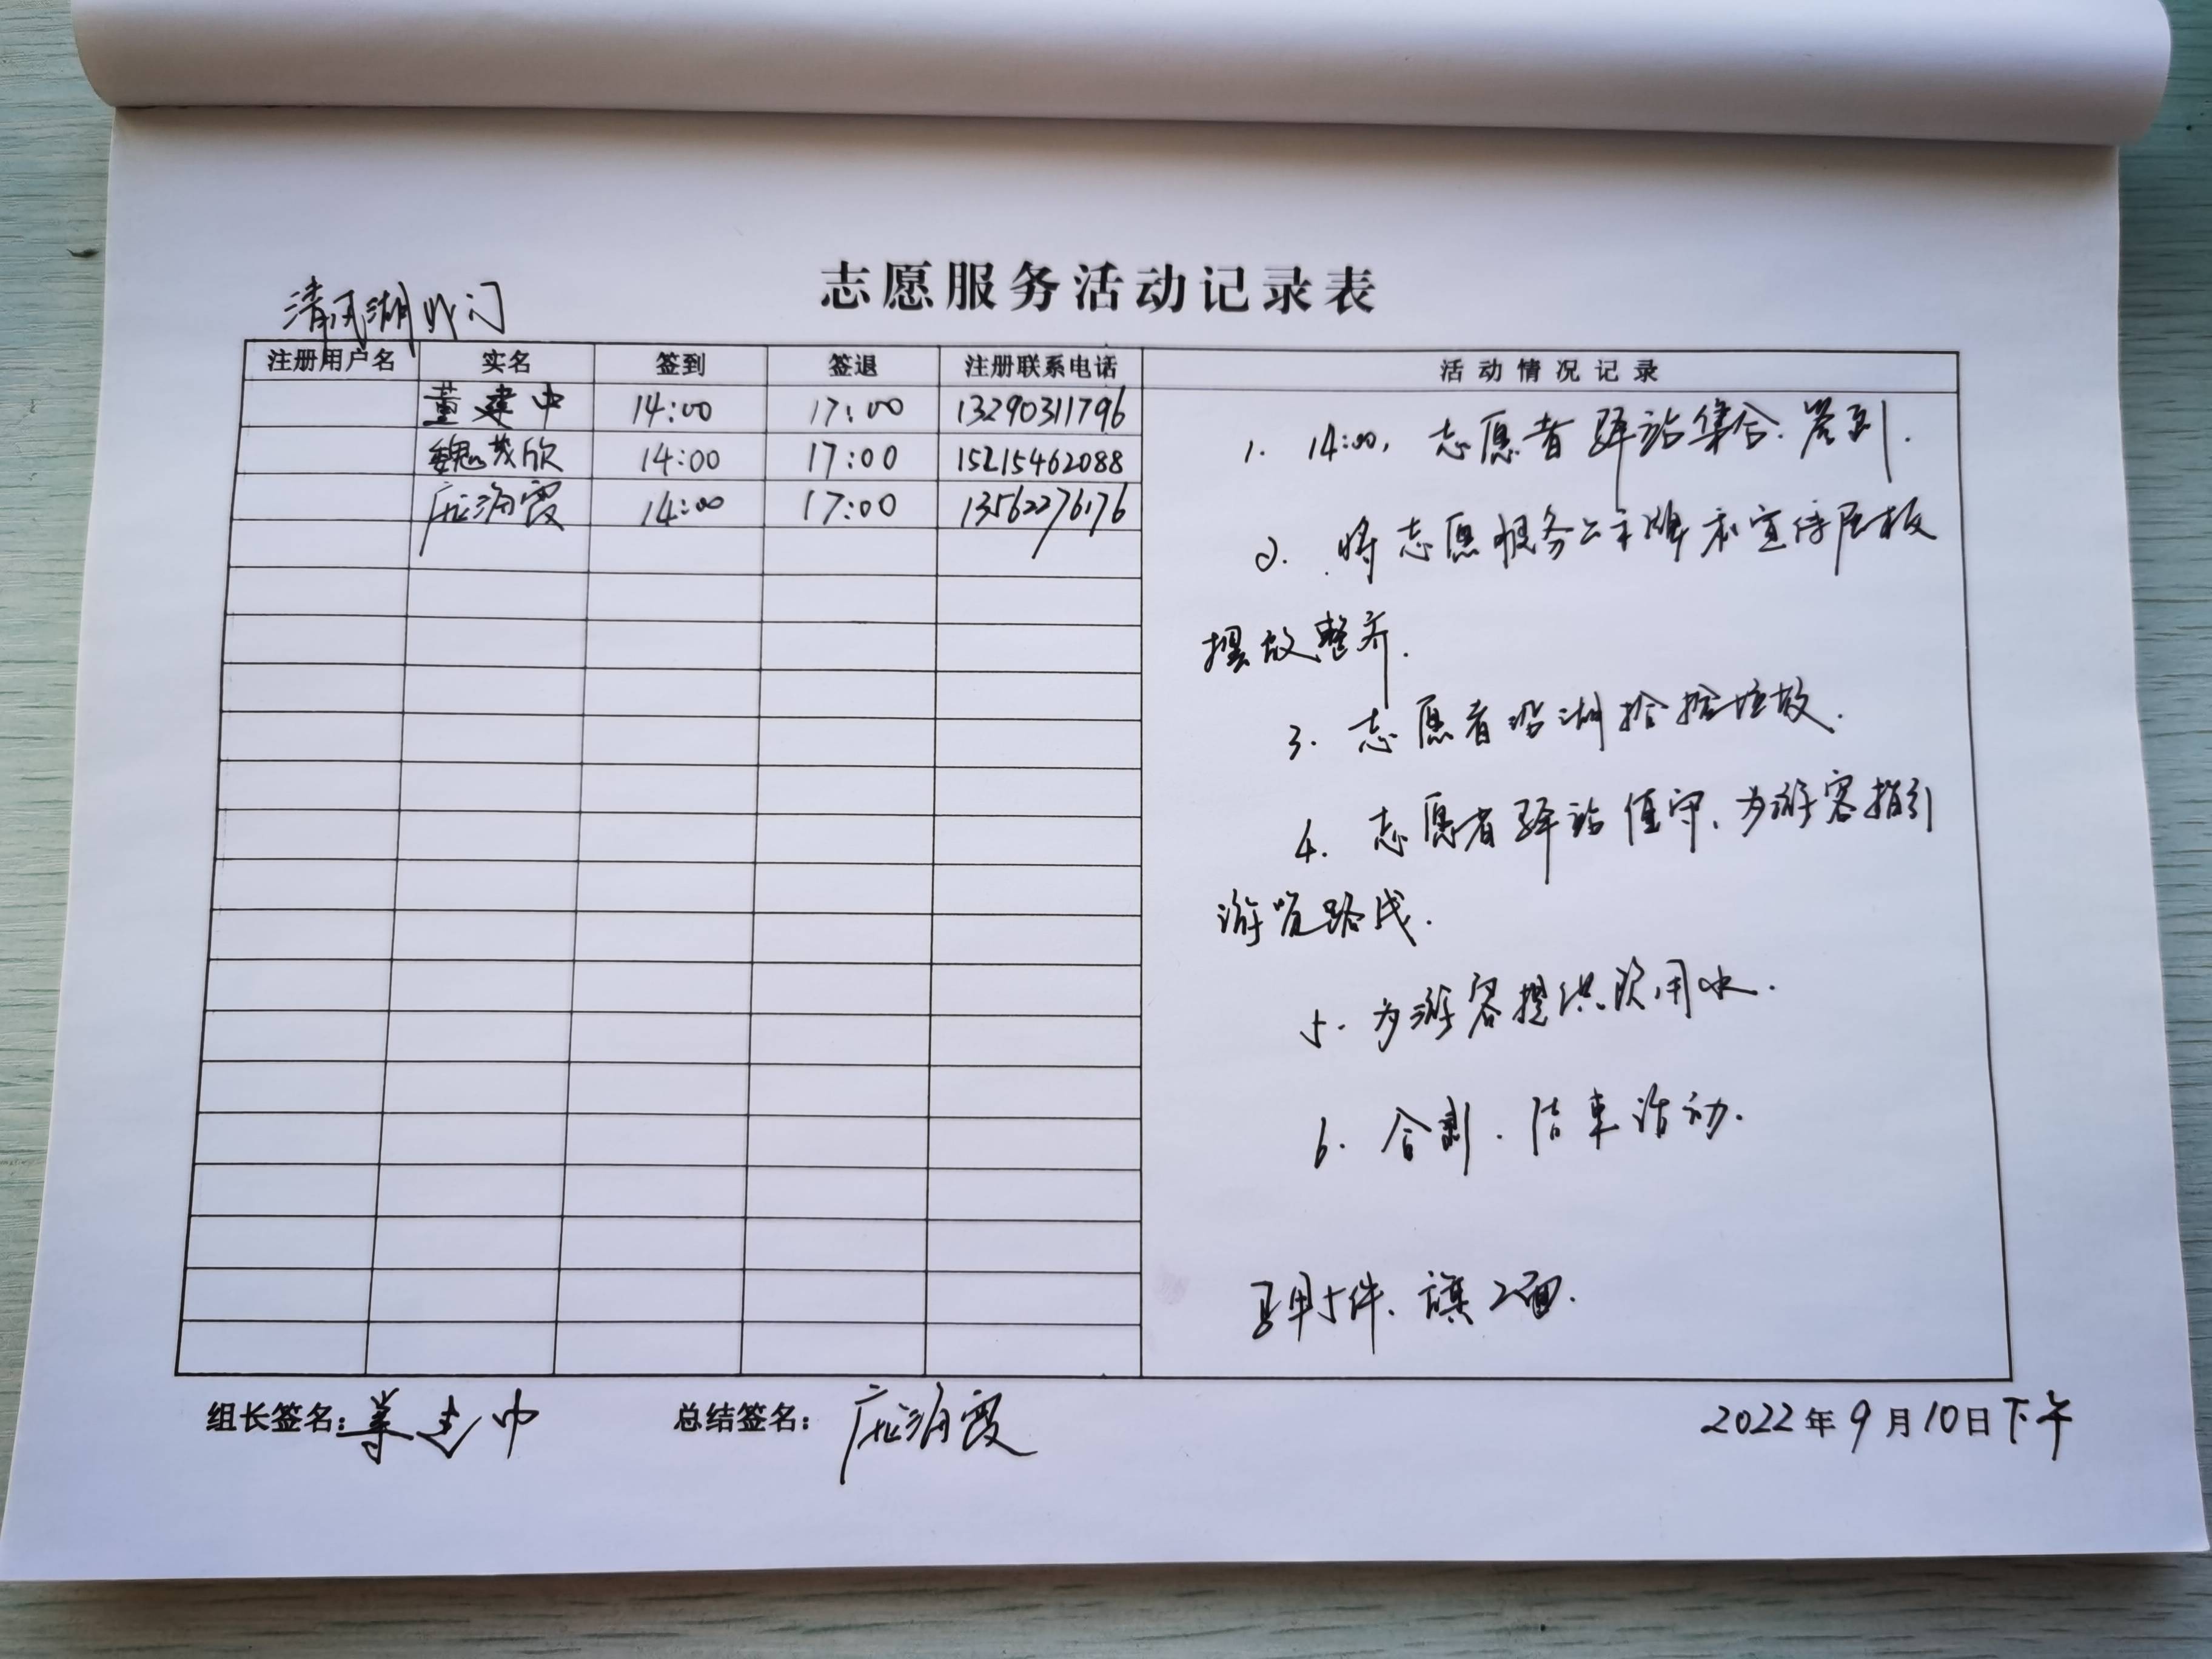 志愿服务活动记录表
清风湖北门
注册用户名 实名 签到 签退 注册联系电话 活动情况记录
董建中 14:00 17:00 13290311796
魏茂欣 14:00 17:00 15215462088
庞海霞 14:00 17:00 13562276176
1. 14:00, 志愿者驿站集合、签到.
2. 将志愿服务公示牌和宣传展板
摆放整齐.
3. 志愿者沿湖捡拾垃圾.
4. 志愿者驿站值守、为游客指引
游览路线.
5. 为游客提供饮用水.
6. 合影. 结束活动.
马甲5件、旗2面.
组长签名: 董建中 总结签名: 庞海霞 2022年9月10日下午